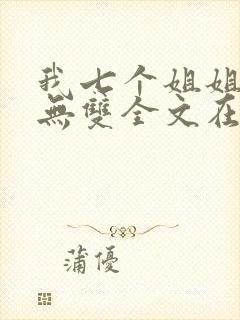 我七个姐姐
無雙全文在
蒲優